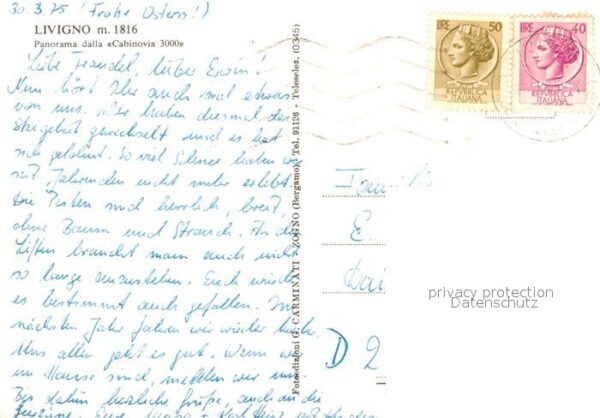 30.3.75 (Frohe Ostern!)
LIVIGNO m. 1816
Panorama dalla «Cabinovia 3000»
Liebe Traudel, lieber Erwin!
Nun hört Ihr auch mal etwas
von uns. Wir haben diesmal das
Skigebiet gewechselt und es hat
sich gelohnt. So viel Schnee haben wir
seit Jahrenden nicht mehr erlebt.
Die Pisten sind herrlich, breit,
ohne Baum und Strauch. An den
Liften braucht man auch nicht
so lange anzustehen. Euch würde
es bestimmt auch gefallen. Im
nächsten Jahr fahren wir wieder
Uns allen geht es gut. Wenn wir
im Hause sind, melden wir uns.
Bis dahin herzliche Grüße, auch an die
Eure
Fotoedizioni G. CARMINATI - ZOGNO (Bergamo) Tel. 91126 - Telesetez. (0345)
LIRE 50
REPVBBLICA
ITALIANA
LIRE 40
REPVBBLICA
ITALIANA
E.
D
privacy protection
Datenschutz